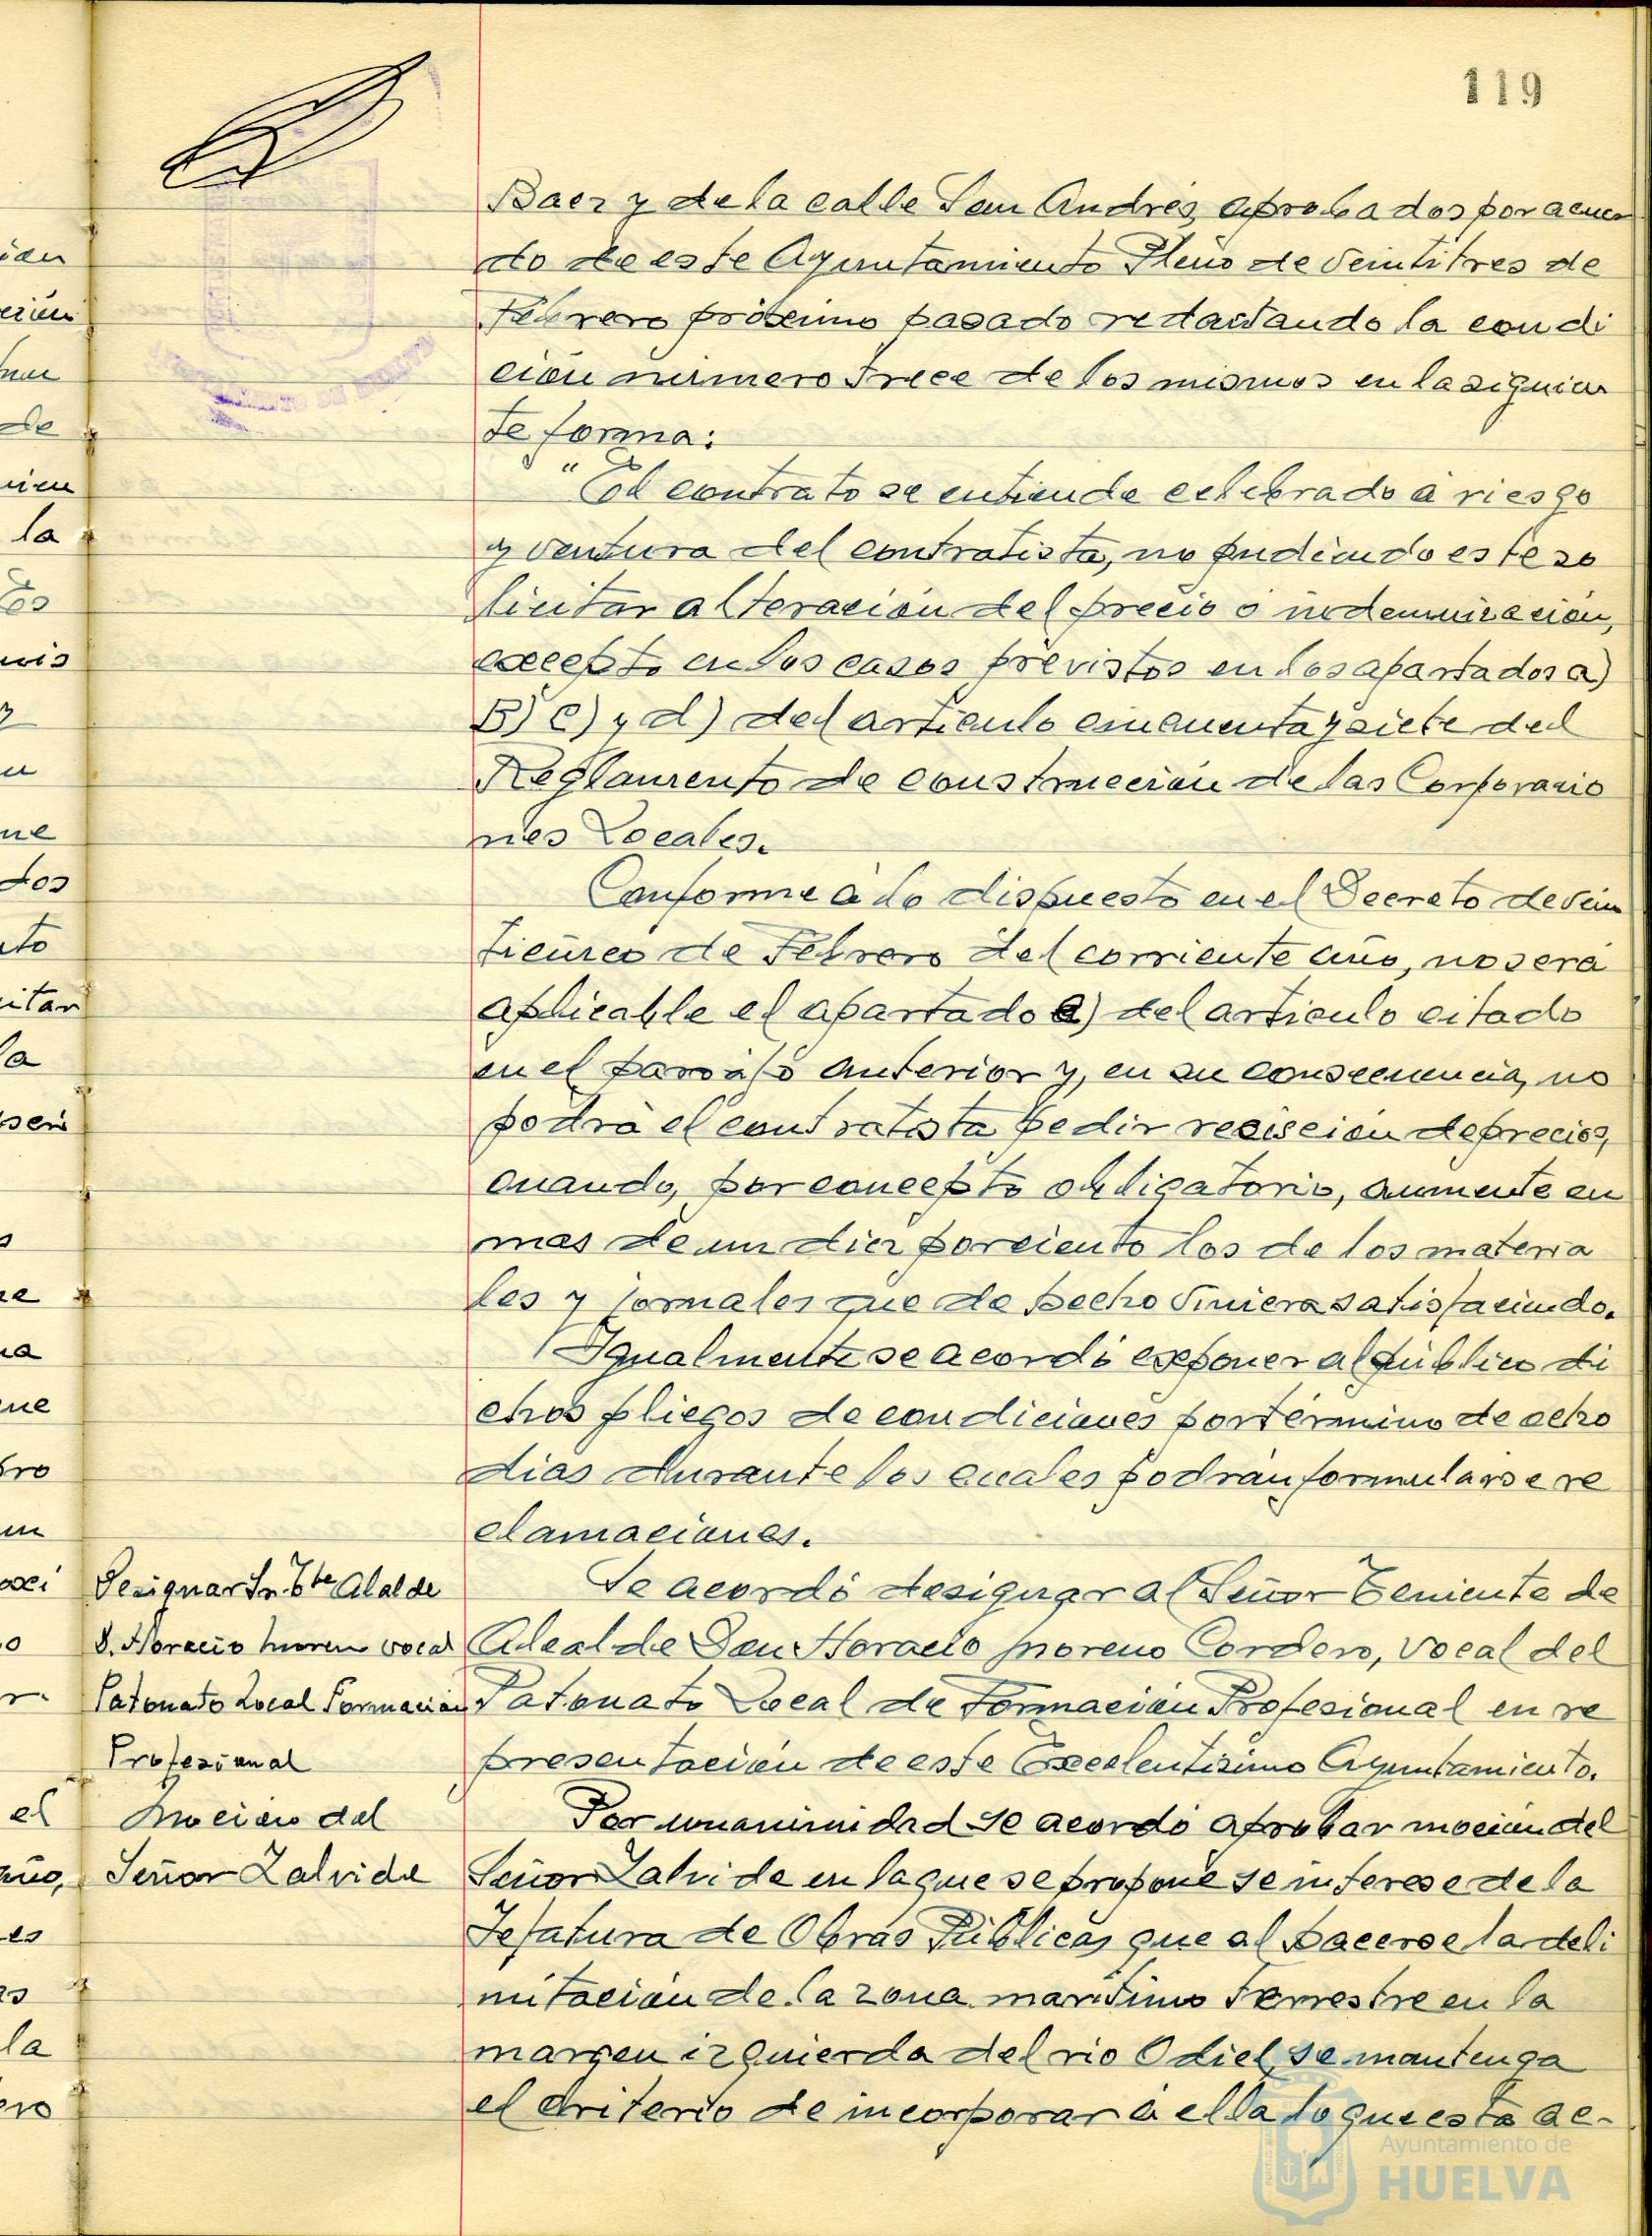 119
Baez y de la calle San Andrés, aprobados por acuer
do de este Ayuntamiento Pleno de veintitres de
Febrero próximo pasado redactando la condi
ción número trece de los mismos en la siguien
te forma:
"El contrato se entiende celebrado a riesgo
y ventura del contratista, no pudiendo este so
licitar alteración del precio o indemnización,
excepto en los casos previstos en los apartados a)
B) c) y d) del artículo cincuenta y siete del
Reglamento de construccción de las Corporacio
nes Locales.
Conforme a lo dispuesto en el Decreto de vein
ticinco de Febrero del corriente año, no será
aplicable el apartado a) del articulo citado
en el parrafo anterior y, en su consecuencia, no
podrá el contratista pedir revisción de precios,
cuando, por concepto obligatorio, aumente en
mas de un diez por ciento los de los materia
les y jornales que de hecho viniera satisfaciendo.
Igualmente se acordó exponer al público di
chos pliegos de condiciones por término de ocho
dias durante los cuales podrán formularse re
clamaciones.
Designar Sr. Tte Alalde
D. Horacio Moreno vocal
Patonato Local Formación
Profesional
Se acordó designar al Señor Teniente de
Alcalde Don Horacio Moreno Cordero, Vocal del
Patonato Local de Formación Profesional en re
presentación de este Excelentísimo Ayuntamiento.
Moción del
Señor Zalvide
Por unanimidad se acordó aprobar moción del
Señor Zalvide en la que se propone se interese de la
Jefatura de Obras Públicas que al hacerse la deli
mitación de la zona marítimo terrestre en la
margen izquierda del rio Odiel, se mantenga
el criterio de incorporar a ella lo que está ac-
Ayuntamiento de
HUELVA